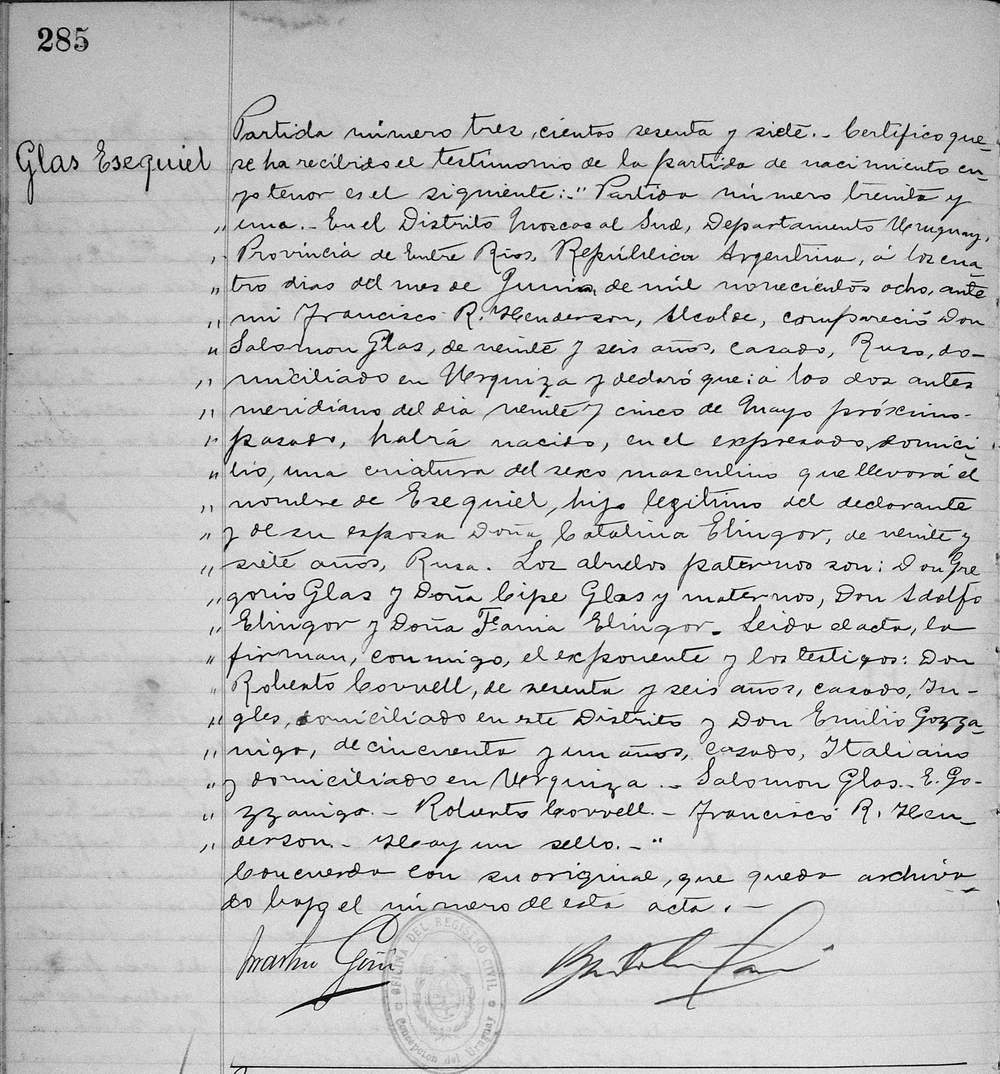 285
Glas Esequiel
Partida número tres cientos sesenta y siete.- Certifico que
se ha recibido el testimonio de la partida de nacimiento cu-
yo tenor es el siguiente:- "Partida número treinta y
" una.- En el Distrito Moscas al Sud, Departamento Uruguay,
" Provincia de Entre Rios, República Argentina, á los cua-
" tro dias del mes de Junio, de mil novecientos ocho, ante
" mi Francisco R. Henderson, Alcalde, compareció Don
" Salomon Glas, de veinte y seis años, casado, Ruso, do-
" miciliado en Urquiza y declaró que: á las dos antes
" meridiano del dia veinte y cinco de Mayo próximo-
" pasado, habrá nacido, en el expresado domici-
" lio, una criatura del sexo masculino que llevará el
" nombre de Esequiel, hijo legítimo del declarante
" y de su esposa Doña Catalina Elingor, de veinte y
" siete años, Rusa. Los abuelos paternos son: Don Gre
" gorio Glas y Doña Cipe Glas y maternos, Don Adolfo
" Elingor y Doña Fania Elingor.- Leida el acta, la
" firman, conmigo, el exponente y los testigos: Don
" Roberto Corvell, de sesenta y seis años, casado, In-
" gles, domiciliado en este Distrito y Don Emilio Gozza-
" nigo, de cincuenta y un años, casado, Italiano
" y domiciliado en Urquiza.- Salomon Glas.- E. Go-
" zzanigo.- Roberto Corvell.- Francisco R. Hen-
" derson.- Hay un sello.-"
Concuerda con su original, que queda archiva-
do bajo el número de esta acta.-
Martin Goñi
OFICINA DEL REGISTRO CIVIL
Concepcion del Uruguay